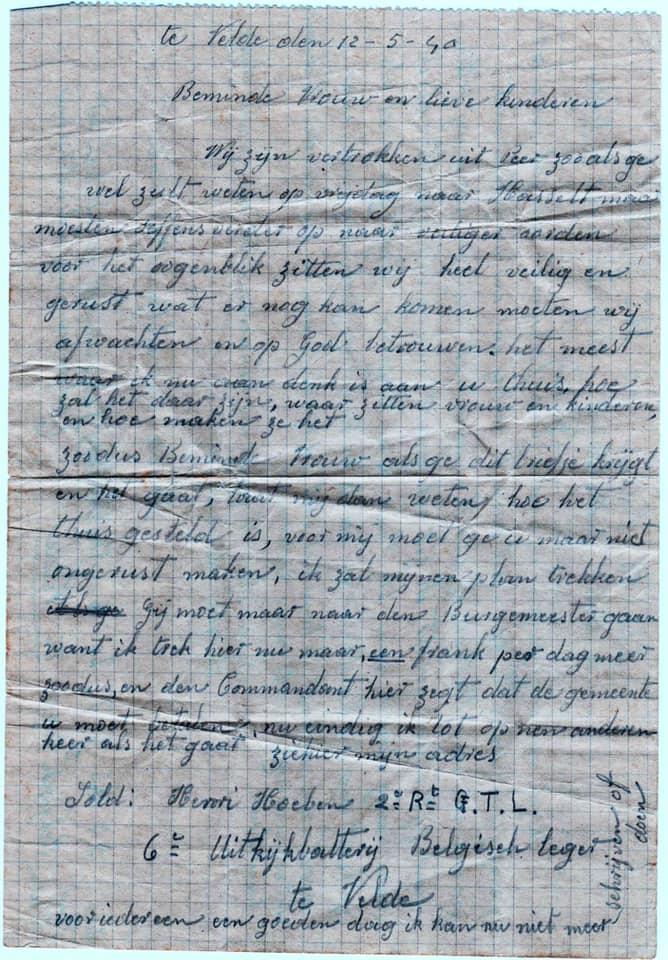 te Velde den 12-5-40
Beminde Vrouw en lieve kinderen
Wij zijn vertrokken uit Peer zooals ge
wel zult weten op vrijdag naar Hasselt maar
moesten seffens verder op naar veiliger oorden
voor het oogenblik zitten wij heel veilig en
gerust wat er nog kan komen moeten wij
afwachten en op God betrouwen. het meest
waar ik nu aan denk is aan u thuis, hoe
zal het daar zijn, waar zitten vrouw en kinderen,
en hoe maken ze het
zoodus Beminde Vrouw als ge dit briefje krijgt
en het gaat, laat mij dan weten, hoe het
thuis gesteld is, voor mij moet ge u maar niet
ongerust maken, ik zal mijnen plan trekken
als ge Gij moet maar naar den Burgemeester gaan
want ik trek hier nu maar, een frank per dag meer
zoodus, en den Commandant hier zegt dat de gemeente
u moet betalen, nu eindig ik tot op nen anderen
keer als het gaat ziehier mijn adres
Sold: Henri Hoeben 2e Rt G.T.L.
6e Uitkijkbatterij Belgisch leger
te Velde
voor iedereen een goeden dag ik kan nu niet meer
schrijven of
doen